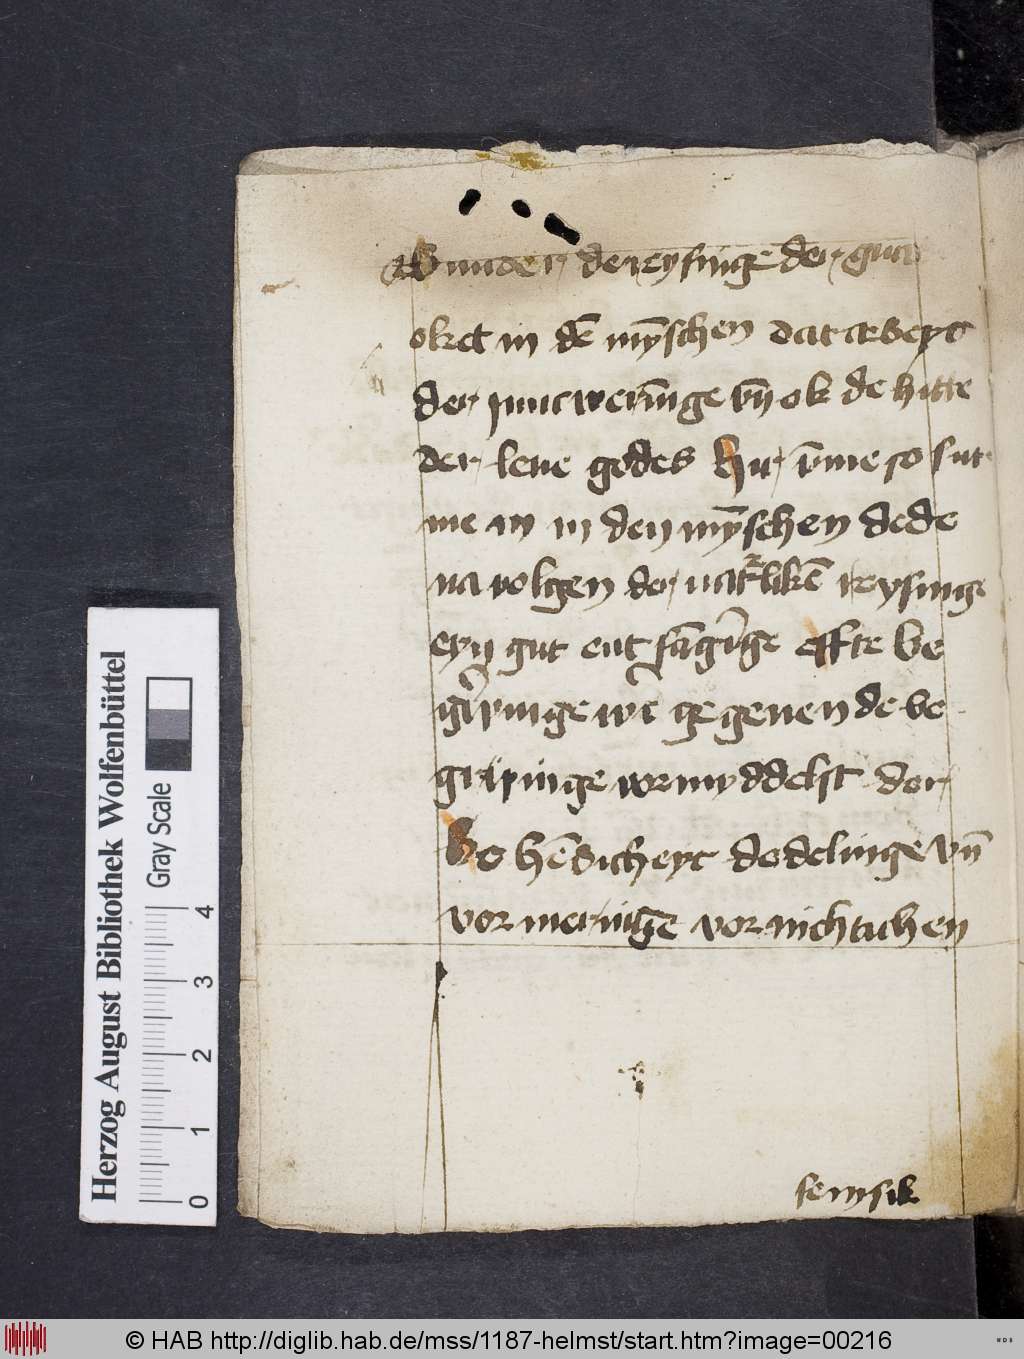 wunder de reysinge der gna
oket in dē mȳschen dat arbeyt
der puntweringe vn̄ ok de hitte
der leue godes Hir vme so sut
me in in den mȳschen dede
na volgen der natr̄likē reysinge
eyn gut ent fāgīge effte be
gripinge wēt gegeuen de be
gripinge vormyddelst der
behēdicheyt dodelinge vn̄
vormeringe vornichtichen
sēmsik
Herzog August Bibliothek Wolfenbüttel
Gray Scale
0 1 2 3 4
© HAB http://diglib.hab.de/mss/1187-helmst/start.htm?image=00216
WDB